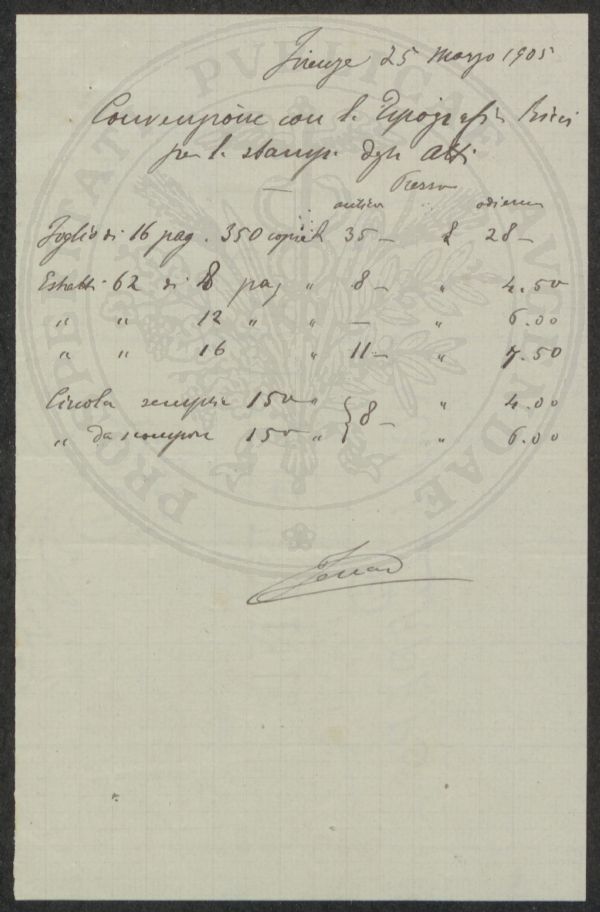 Firenze 25 Marzo 1905
Convenzione con la Tipografia Ricci
per la stampa degli Atti
Prezzo
antico odierno
Foglio di 16 pag. 350 copie £ 35 — £ 28 —
Estratti 62 di 8 pag " 8 — " 4.50
" " 12 " " — " 6.00
" " 16 " 11 — " 7.50
Circola semplice 150 " 8 — " 4.00
" da scomporre 150 " " 6.00
PROSPERITATI PVBLICAE AVGENDAE